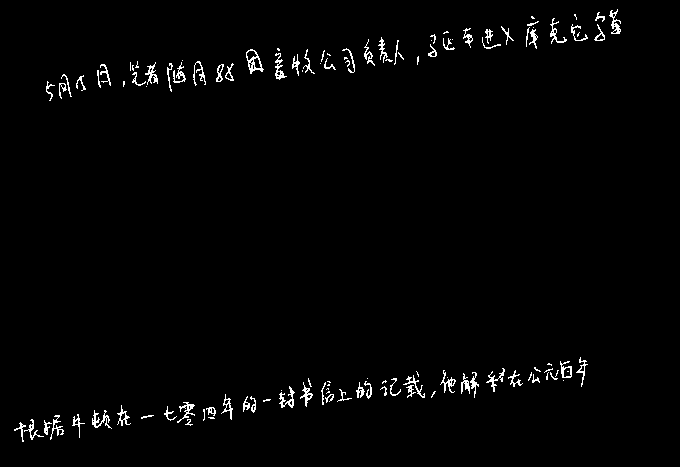 5月15日，笔者随同88团畜牧公司负责人，驱车进入库克它乌草
根据牛顿在一七零四年的一封书信上的记载，他解释在公元百年